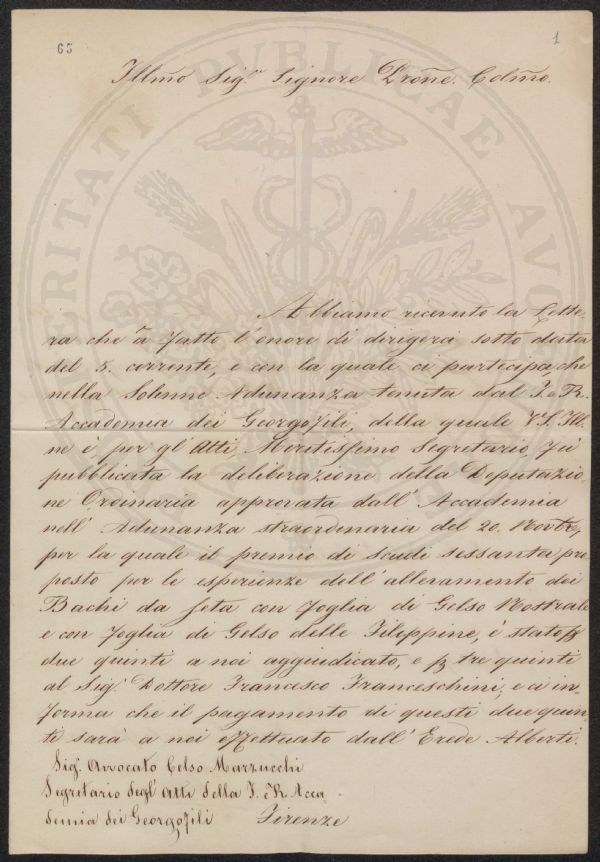 65
1
Illmo Sigr. Signore Prone. Colmo.
Abbiamo ricevuto la Lette
ra che à fatto l'onore di dirigerci sotto data
del 5. corrente, e con la quale ci partecipa che
nella Solenne Adunanza tenuta dal I. e R.
Accademia dei Georgofili, della quale V. S. Ill.
ne è per gl' Atti, Meritissimo Segretario, fù
pubblicata la deliberazione della Deputazio
ne Orcinaria approvata dall' Accademia
nell' Adunanza straordinaria del 20. Novbre,
per la quale il premio di Scudi sessanta pro
posto per le esperienze dell' allevamento dei
Bachi da seta con foglia di Gelso Nostrale
e con foglia di Gelso delle Filippine, è stato p
due quinti a noi aggiudicato, e p tre quinti
al Sigr. Dottore Francesco Franceschini, e ci in=
forma che il pagamento di questi due quin
ti sarà a noi effettuato dall' Erede Alberti.
Sigr. Avvocato Celso Marzucchi
Segretario degl' Atti della I. e R. Acca
demia dei Georgofili Firenze
PROSPERITATI PUBLICAE AU